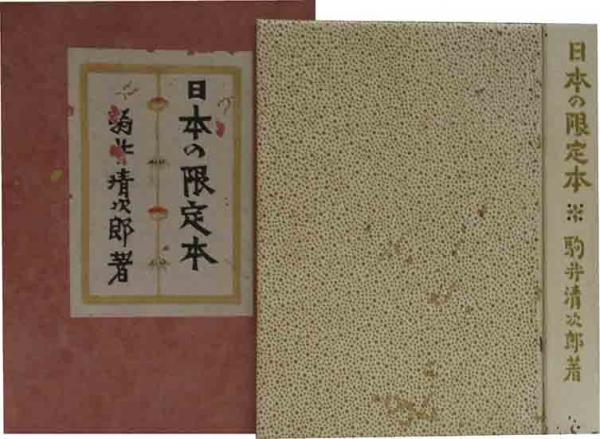 日本の限定本
駒井清次郎著
日本の限定本 ※ 駒井清次郎著